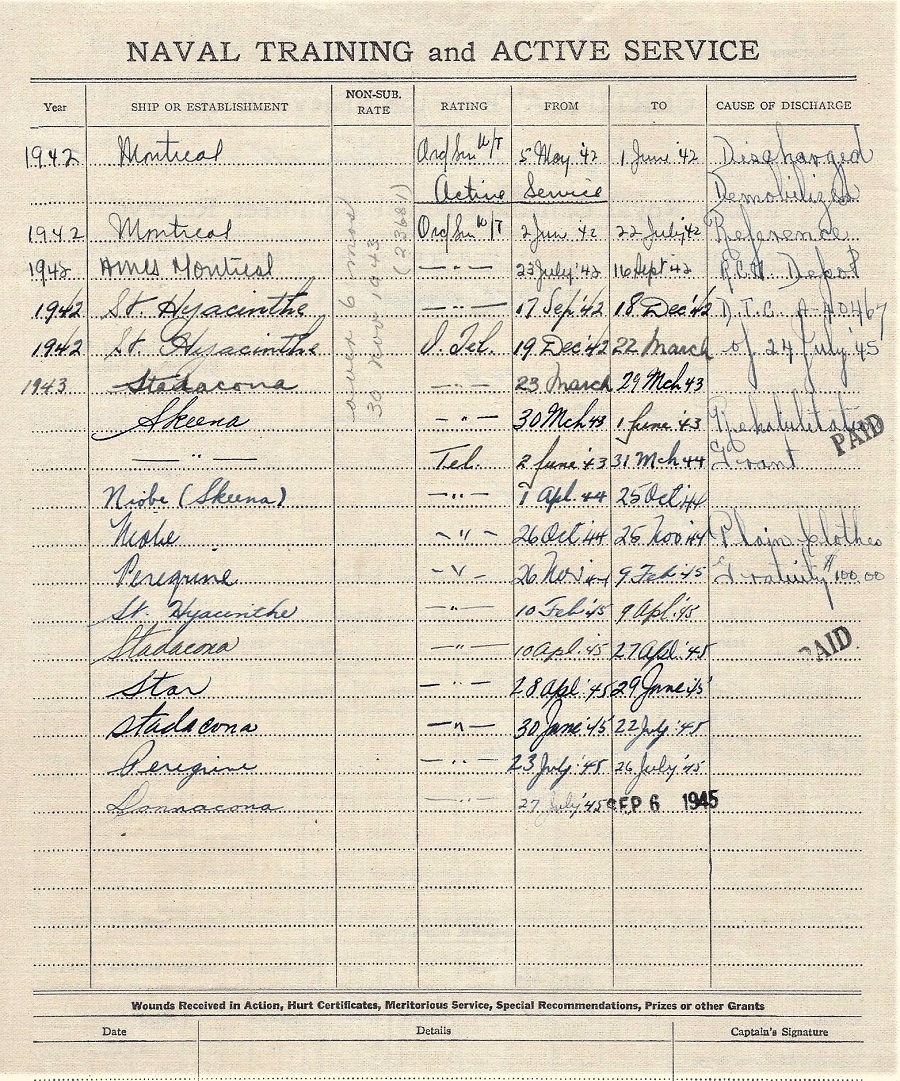 NAVAL TRAINING and ACTIVE SERVICE
Year SHIP OR ESTABLISHMENT NON-SUB. RATE RATING FROM TO CAUSE OF DISCHARGE
1942 Montreal Ord/Smn W/T 5 May '42 1 June '42 Discharged
Active Service Demobilized
1942 Montreal Ord/Smn W/T 2 Jun '42 22 July '42 Reference
1942 HMCS Montreal — " — 23 July '42 16 Sept '42 R.C.N. Depot
1942 St. Hyacinthe — " — 17 Sep '42 18 Dec '42 D.T.C. A-A0467
1942 St. Hyacinthe O. Tel. 19 Dec '42 22 March of 24 July '45
1943 Stadacona — " — 23 March 29 Mch 43
Skeena — " — 30 Mch 43 1 June '43 Rehabilitation
— " — Tel. 2 June '43 31 Mch 44 Grant PAID
Niobe (Skeena) — " — 1 Apl. 44 25 Oct '44
Niobe — " — 26 Oct '44 25 Nov '44 Plain Clothes
Peregrine — " — 26 Nov 44 9 Feb. 45 Gratuity $100.00
St. Hyacinthe — " — 10 Feb '45 9 Apl. '45
Stadacona — " — 10 Apl. '45 27 Apl. '45 PAID
Star — " — 28 Apl. '45 29 June '45
Stadacona — " — 30 June '45 22 July '45
Peregrine — " — 23 July '45 26 July '45
Donnacona — " — 27 July '45 SEP 6 1945
over 6 mos
30 Nov 1943
(23681)
Wounds Received in Action, Hurt Certificates, Meritorious Service, Special Recommendations, Prizes or other Grants
Date Details Captain's Signature